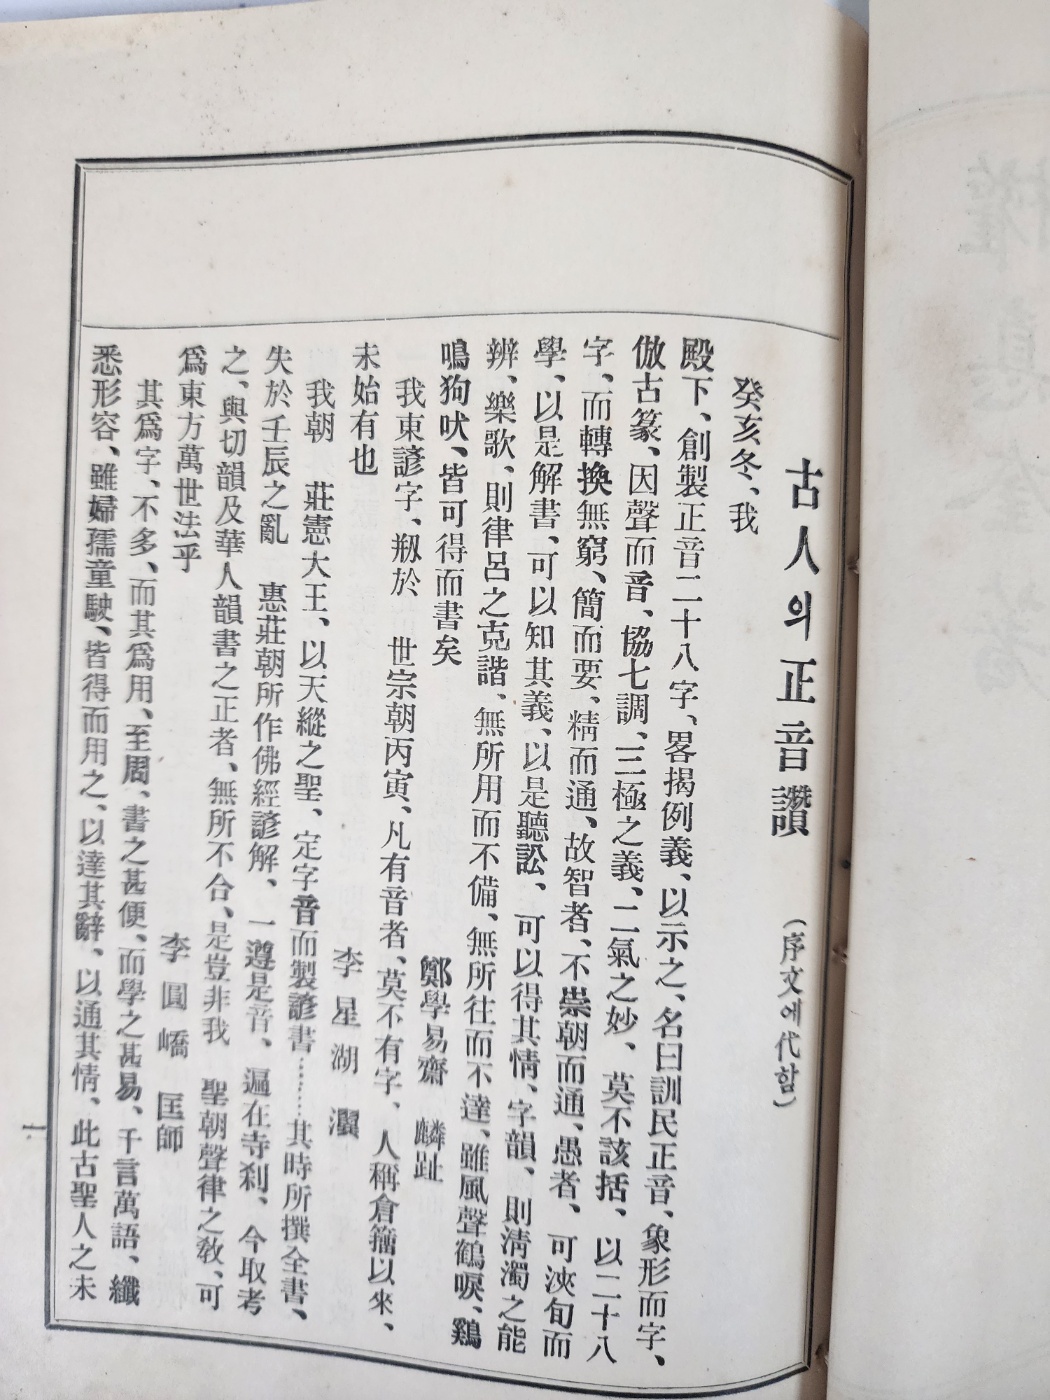 古人의正音讚 (序文에代함)
癸亥冬、我
殿下、創製正音二十八字、畧揭例義、以示之、名曰訓民正音、象形而字、
倣古篆、因聲而音、協七調、三極之義、二氣之妙、莫不該括、以二十八
字、而轉換無窮、簡而要、精而通、故智者、不崇朝而通、愚者、可浹旬而
學、以是解書、可以知其義、以是聽訟、可以得其情、字韻、則淸濁之能
辨、樂歌、則律呂之克諧、無所用而不備、無所往而不達、雖風聲鶴唳、鷄
鳴狗吠、皆可得而書矣
鄭學易齋 麟趾
我東諺字、刱於 世宗朝丙寅、凡有音者、莫不有字、人稱倉籀以來、
未始有也
李星湖 瀷
我朝 莊憲大王、以天縱之聖、定字音而製諺書……其時所撰全書、
失於壬辰之亂 惠莊朝所作佛經諺解、一遵是音、遍在寺刹、今取考
之、與切韻及華人韻書之正者、無所不合、是豈非我 聖朝聲律之敎、可
爲東方萬世法乎
李圓嶠 匡師
其爲字、不多、而其爲用、至周、書之甚便、而學之甚易、千言萬語、纖
悉形容、雖婦孺童駛、皆得而用之、以達其辭、以通其情、此古聖人之未
一